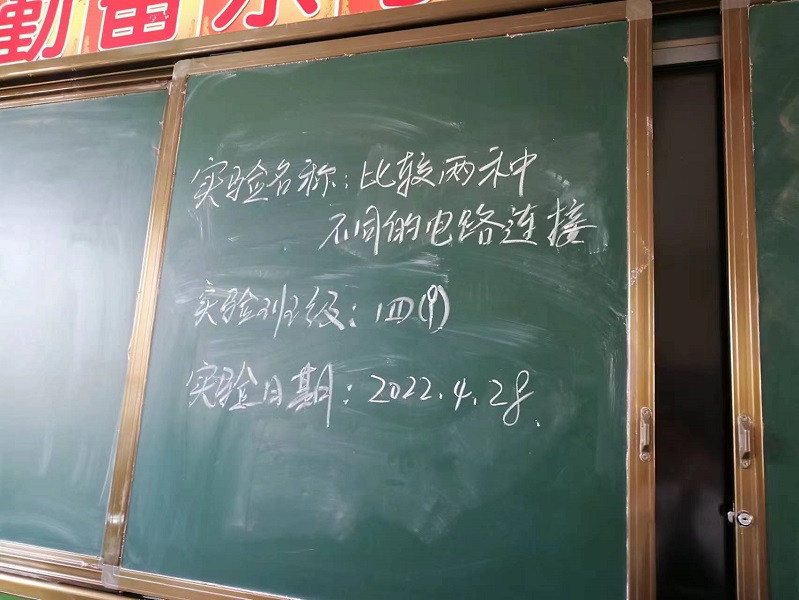 勤奋
实验名称：比较两种
不同的电路连接
实验班级：四(9)
实验日期：2022.4.28.